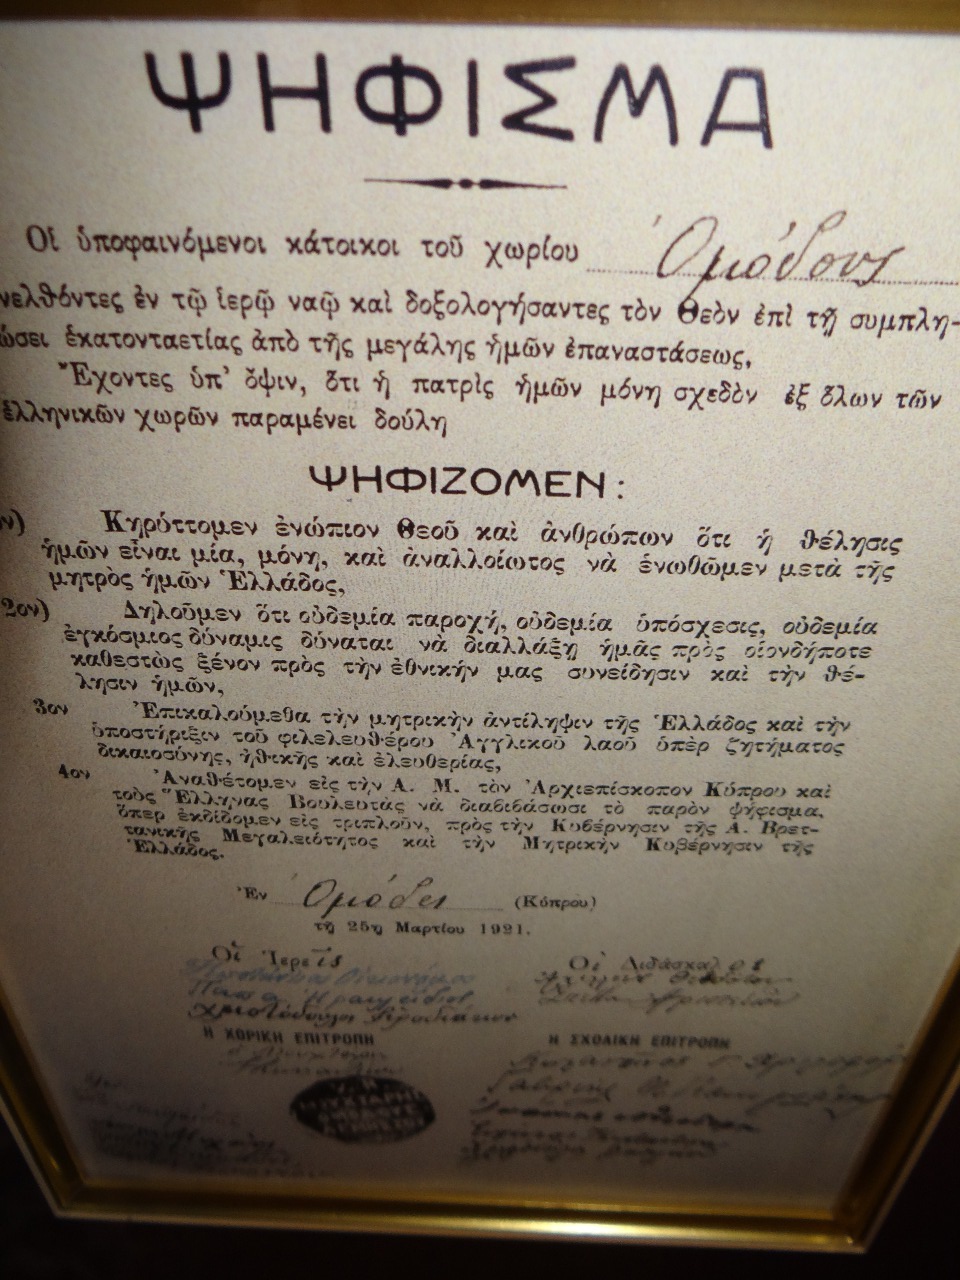 ΨΗΦΙΣΜΑ
Οἱ ὑποφαινόμενοι κάτοικοι τοῦ χωρίου Ὁμόδους
νελθόντες ἐν τῷ ἱερῷ ναῷ καὶ δοξολογήσαντες τὸν Θεὸν ἐπὶ τῇ συμπλη-
ώσει ἑκατονταετίας ἀπὸ τῆς μεγάλης ἡμῶν ἐπαναστάσεως,
Ἔχοντες ὑπ' ὄψιν, ὅτι ἡ πατρὶς ἡμῶν μόνη σχεδὸν ἐξ ὅλων τῶν
ἑλληνικῶν χωρῶν παραμένει δούλη
ΨΗΦΙΖΟΜΕΝ:
ν) Κηρύττομεν ἐνώπιον Θεοῦ καὶ ἀνθρώπων ὅτι ἡ θέλησις
ἡμῶν εἶναι μία, μόνη, καὶ ἀναλλοίωτος νὰ ἑνωθῶμεν μετὰ τῆς
μητρὸς ἡμῶν Ἑλλάδος,
2ον) Δηλοῦμεν ὅτι οὐδεμία παροχή, οὐδεμία ὑπόσχεσις, οὐδεμία
ἐγκόσμιος δύναμις δύναται νὰ διαλλάξῃ ἡμᾶς πρὸς οἱονδήποτε
καθεστὼς ξένον πρὸς τὴν ἐθνικήν μας συνείδησιν καὶ τὴν θέ-
λησιν ἡμῶν,
3ον Ἐπικαλούμεθα τὴν μητρικὴν ἀντίληψιν τῆς Ἑλλάδος καὶ τὴν
ὑποστήριξιν τοῦ φιλελευθέρου Ἀγγλικοῦ λαοῦ ὑπὲρ ζητήματος
δικαιοσύνης, ἠθικῆς καὶ ἐλευθερίας,
4ον Ἀναθέτομεν εἰς τὴν Α. Μ. τὸν Ἀρχιεπίσκοπον Κύπρου καὶ
τοὺς Ἕλληνας Βουλευτὰς νὰ διαβιβάσωσι τὸ παρὸν ψήφισμα,
ὅπερ ἐκδίδομεν εἰς τριπλοῦν, πρὸς τὴν Κυβέρνησιν τῆς Α. Βρετ-
τανικῆς Μεγαλειότητος καὶ τὴν Μητρικὴν Κυβέρνησιν τῆς
Ἑλλάδος.
Ἐν Ὁμόδει (Κύπρου)
τῇ 25ῃ Μαρτίου 1921.
Οἱ Ἱερεῖς
Οἰκονόμος
Παπα
Οἱ Διδάσκαλοι
Η ΧΩΡΙΚΗ ΕΠΙΤΡΟΠΗ
Η ΣΧΟΛΙΚΗ ΕΠΙΤΡΟΠΗ